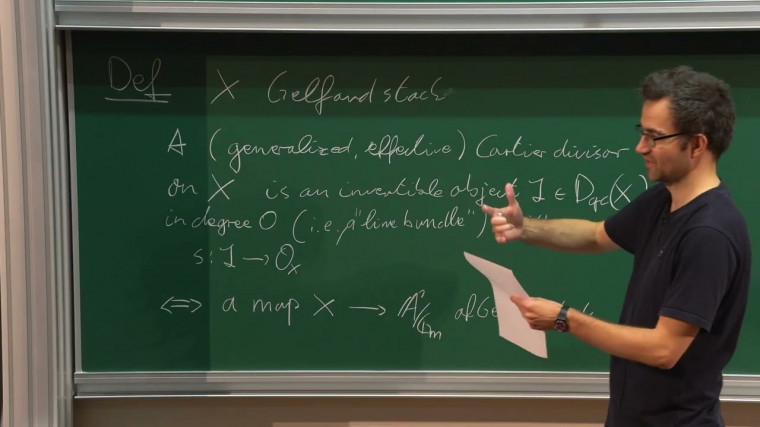 Def X Gelfand stack
A (generalized, effective) Cartier divisor
on X is an invertible object I ∈ D_qc(X)
in degree 0 (i.e. a "line bundle")
s: I → O_X
⟺ a map X → A^1/G_m of Ge